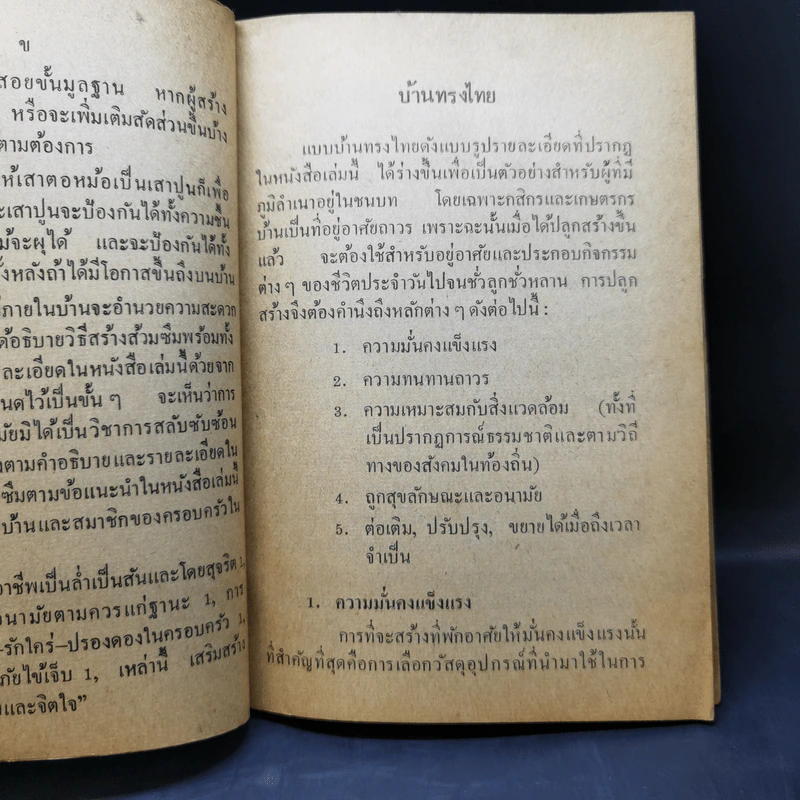 ข
สอยขั้นมูลฐาน หากผู้สร้าง
หรือจะเพิ่มเติมสัดส่วนขึ้นบ้าง
ตามต้องการ
ให้เสาตอหม้อเป็นเสาปูนก็เพื่อ
ะเสาปูนจะป้องกันได้ทั้งความชื้น
ม้จะผุได้ และจะป้องกันได้ทั้ง
ั้งหลังถ้าได้มีโอกาสขึ้นถึงบนบ้าน
ภายในบ้านจะอำนวยความสะดวก
ด้อธิบายวิธีสร้างส้วมซึมพร้อมทั้ง
ละเอียดในหนังสือเล่มนี้ด้วยจาก
นดไว้เป็นขั้น ๆ จะเห็นว่าการ
มัยมิได้เป็นวิชาการสลับซับซ้อน
งตามคำอธิบายและรายละเอียดใน
ซึมตามข้อแนะนำในหนังสือเล่มนี้
บ้านและสมาชิกของครอบครัวใน
อาชีพเป็นล่ำเป็นสันและโดยสุจริต 1,
อนามัยตามควรแก่ฐานะ 1, การ
–รักใคร่–ปรองดองในครอบครัว 1,
ภัยไข้เจ็บ 1, เหล่านี้ เสริมสร้าง
และจิตใจ”
บ้านทรงไทย
แบบบ้านทรงไทยดังแบบรูปรายละเอียดที่ปรากฏ
ในหนังสือเล่มนี้ ได้ร่างขึ้นเพื่อเป็นตัวอย่างสำหรับผู้ที่มี
ภูมิลำเนาอยู่ในชนบท โดยเฉพาะกสิกรและเกษตรกร
บ้านเป็นที่อยู่อาศัยถาวร เพราะฉะนั้นเมื่อได้ปลูกสร้างขึ้น
แล้ว จะต้องใช้สำหรับอยู่อาศัยและประกอบกิจกรรม
ต่าง ๆ ของชีวิตประจำวันไปจนชั่วลูกชั่วหลาน การปลูก
สร้างจึงต้องคำนึงถึงหลักต่าง ๆ ดังต่อไปนี้ :
1. ความมั่นคงแข็งแรง
2. ความทนทานถาวร
3. ความเหมาะสมกับสิ่งแวดล้อม (ทั้งที่
เป็นปรากฏการณ์ธรรมชาติและตามวิถี
ทางของสังคมในท้องถิ่น)
4. ถูกสุขลักษณะและอนามัย
5. ต่อเติม, ปรับปรุง, ขยายได้เมื่อถึงเวลา
จำเป็น
1. ความมั่นคงแข็งแรง
การที่จะสร้างที่พักอาศัยให้มั่นคงแข็งแรงนั้น
ที่สำคัญที่สุดคือการเลือกวัสดุอุปกรณ์ที่นำมาใช้ในการ